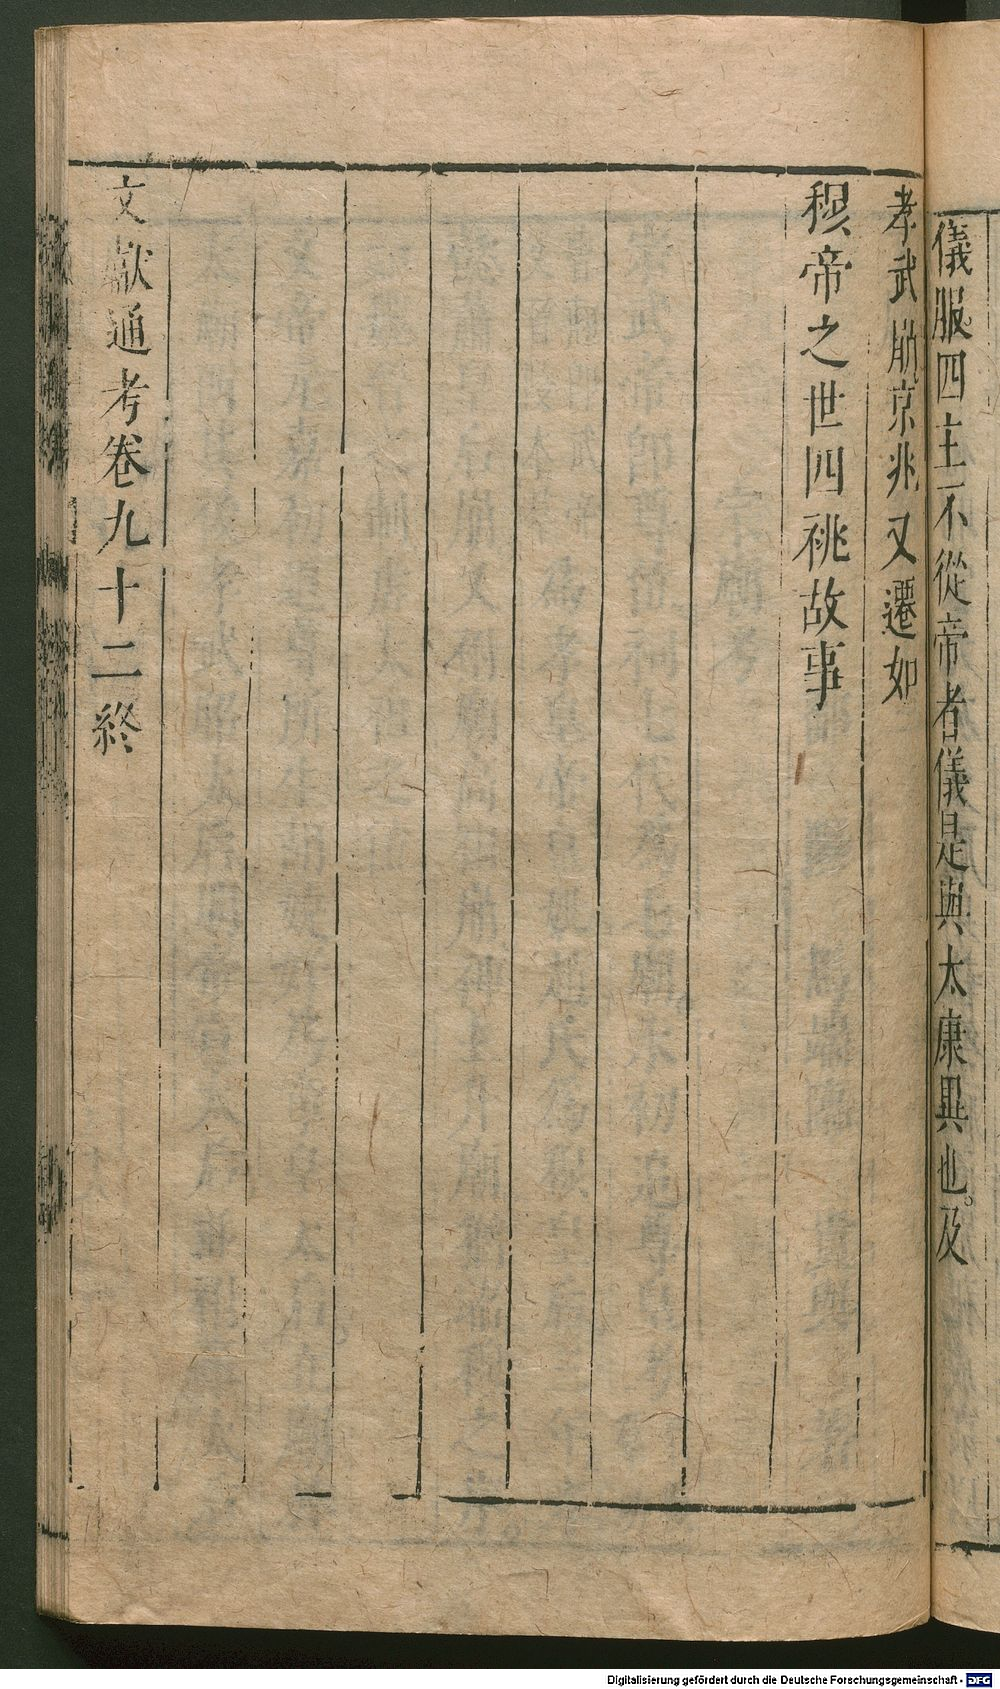 儀服四主不從帝者儀是與太康異也。及
孝武崩京兆又遷如
穆帝之世四祧故事
文獻通考卷九十二終
Digitalisierung gefördert durch die Deutsche Forschungsgemeinschaft - DFG